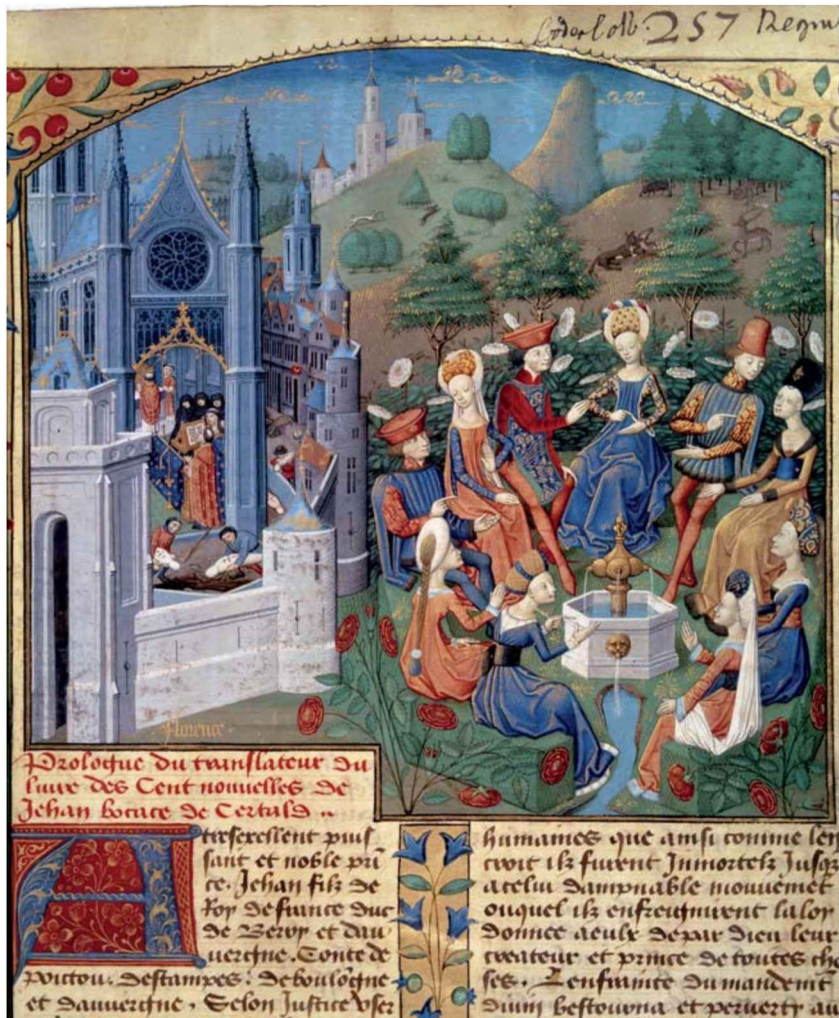 257 Regin
Florence
Prologue du translateur du
livre des Cent nouvelles de
Jehan bocace de Certald
A tresexellent puis
sant et noble pri
ce. Jehan filz de
Roy de france duc
de Berry et dau
uergne. Conte de
poictou. destampes. de bouloigne
et dauuergne. Selon Justice vser
humaines que ainsi comme len
croit ilz furent Inmortelz Jusq
a celui dampnable mouuemet
ouquel ilz enfreingnirent la loy
donnee a eulx de par dieu leur
createur et prince de toutes cho
ses. Lenfrainte du mandemt
diuin bestourna et peruerty au